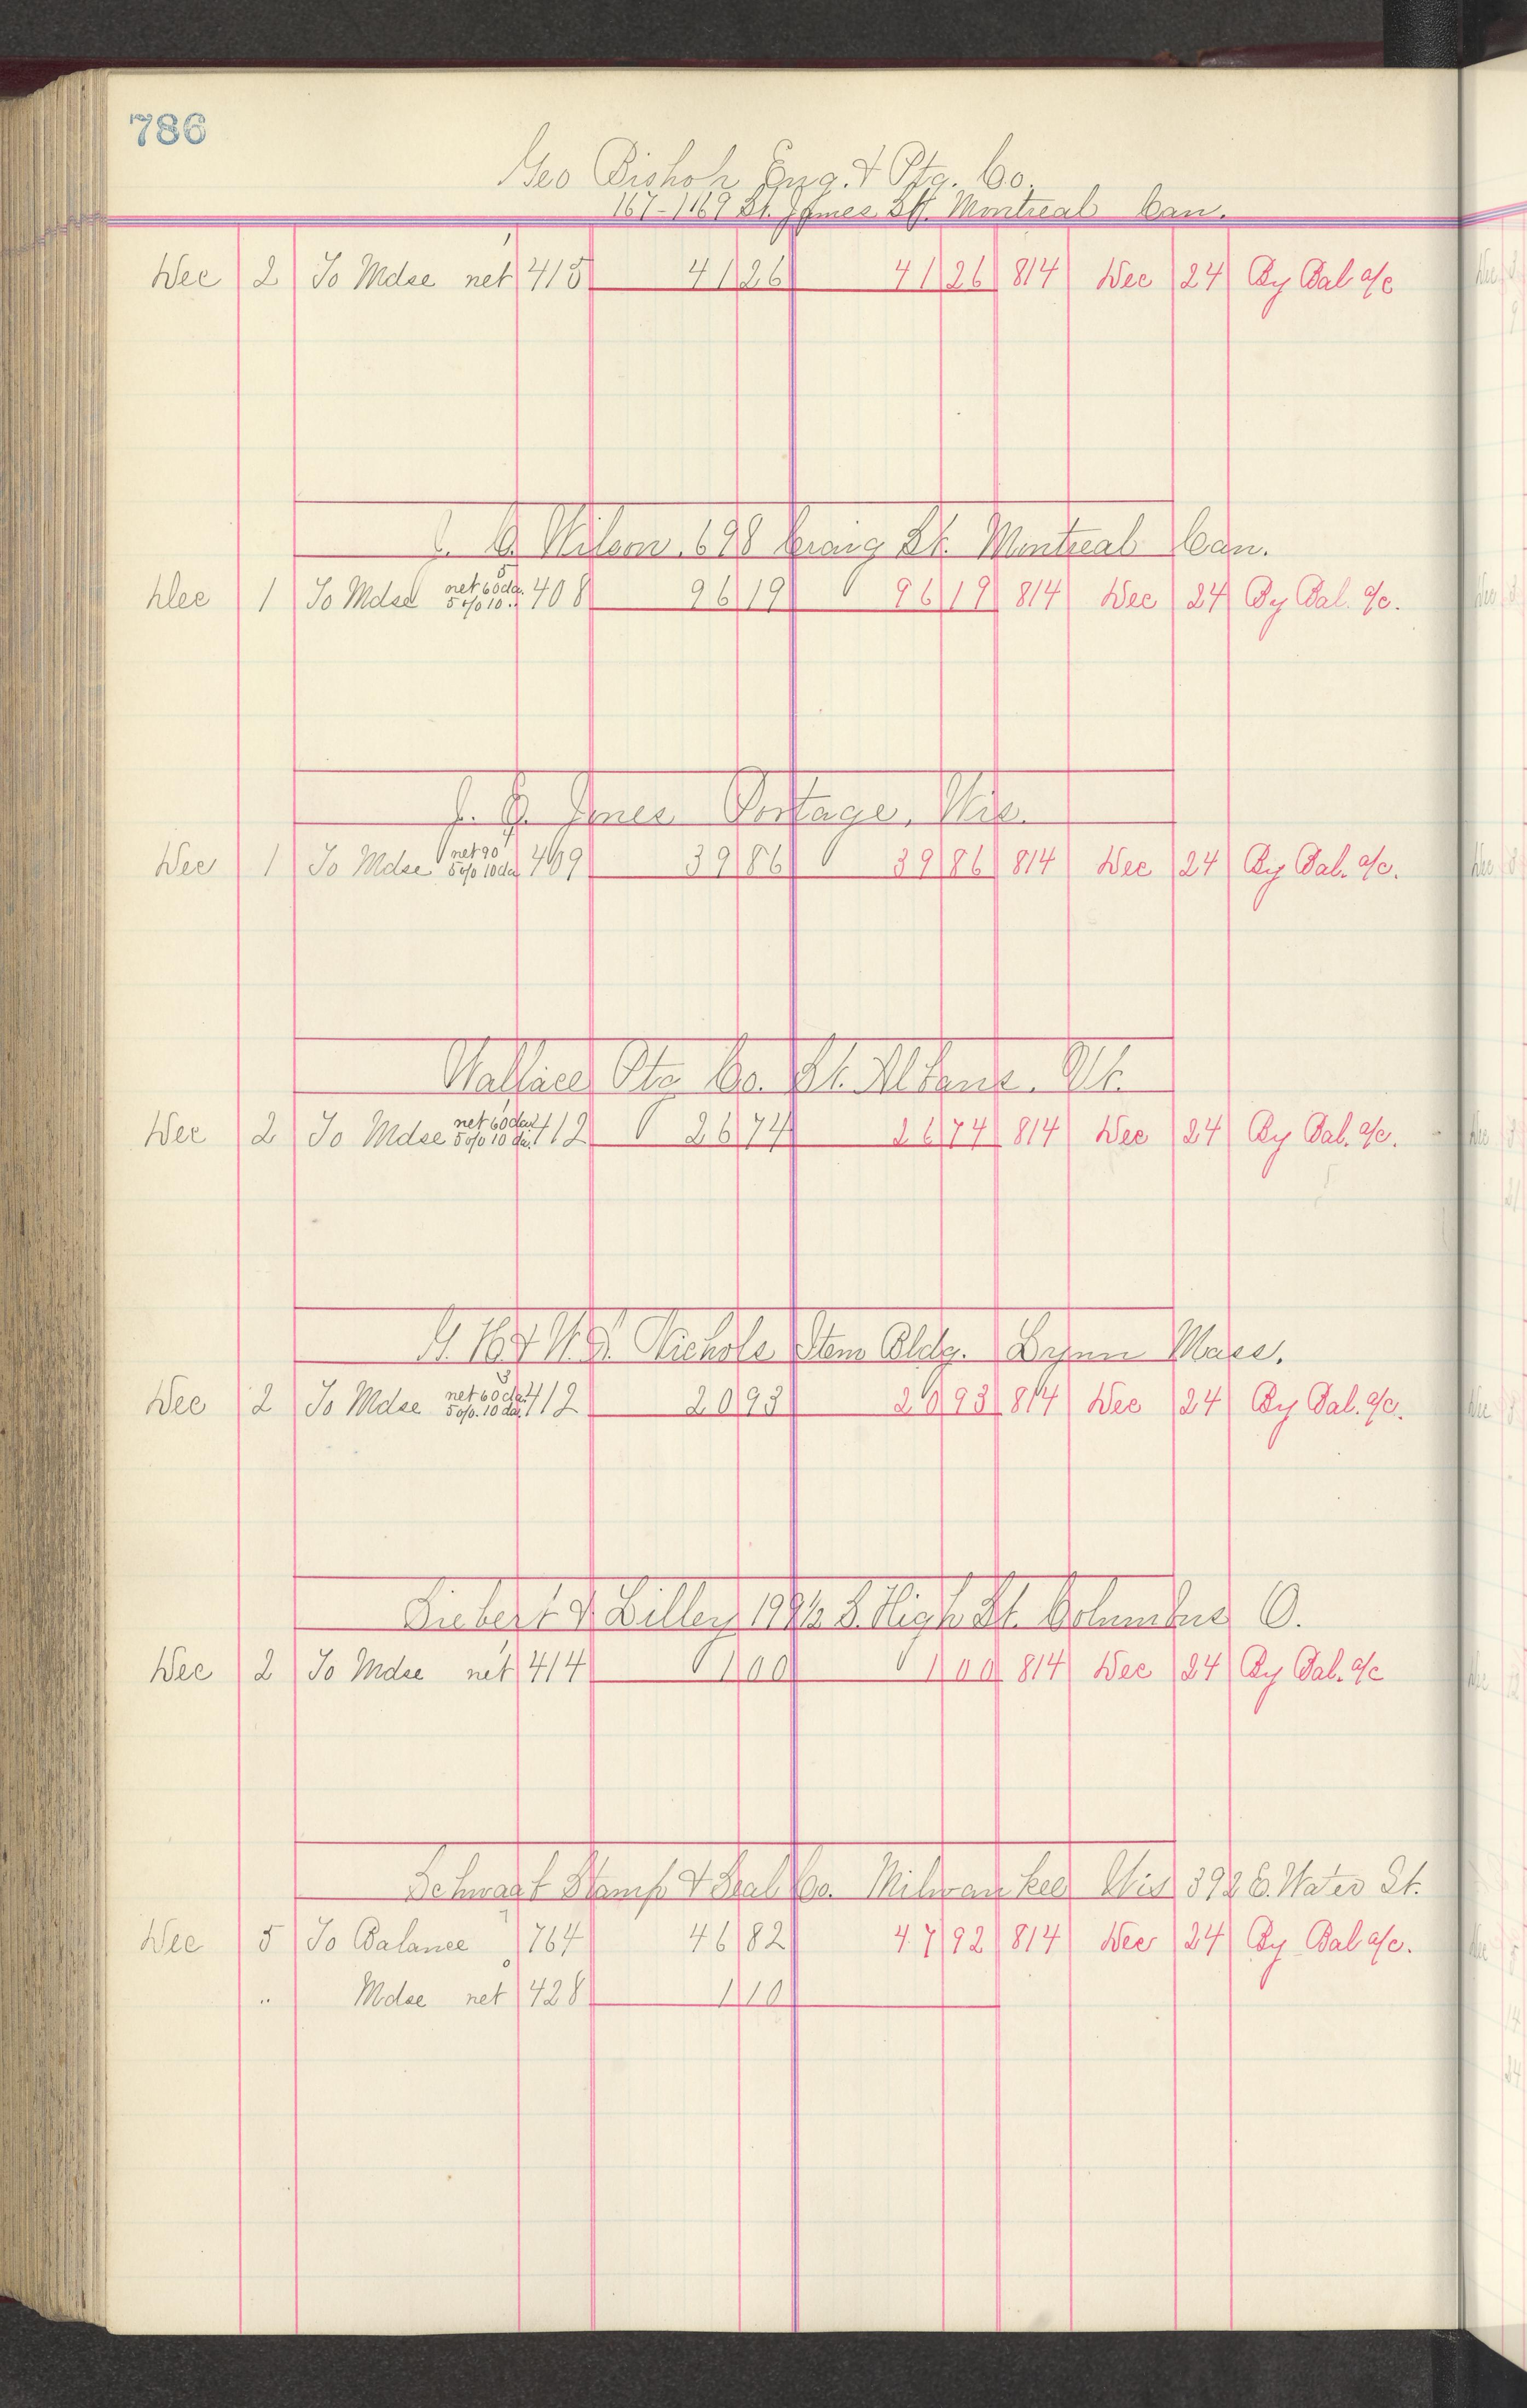 786
Geo Bishop Eng. & Ptg. Co.
167-1169 St. James St. Montreal Can.
Dec 2 To Mdse net 415 41 26 41 26 814 Dec 24 By Bal a/c
J. C. Wilson. 698 Craig St. Montreal Can.
Dec 1 To Mdse net 60 da. 5 % 10 .. 408 96 19 96 19 814 Dec 24 By Bal. a/c.
Jones Portage, Wis.
Dec 1 To Mdse net 90 5 % 10 da 409 39 86 39 86 814 Dec 24 By Bal. a/c.
Wallace Ptg Co. St. Albans. Vt.
Dec 2 To Mdse net 60 da 5 % 10 da. 412 26 74 26 74 814 Dec 24 By Bal. a/c.
Nichols Bldg. Lynn Mass.
Dec 2 To Mdse net 60 da. 5 %. 10 da. 412 20 93 20 93 814 Dec 24 By Bal. a/c.
Siebert & Lilley S. High St. Columbus O.
Dec 2 To Mdse net 414 1 00 1 00 814 Dec 24 By Bal. a/c
Schwaat Stamp & Seal Co. Milwaukee Wis 392 E. Water St.
Dec 5 To Balance 764 46 82 47 92 814 Dec 24 By Bal a/c.
.. Mdse net 428 1 10